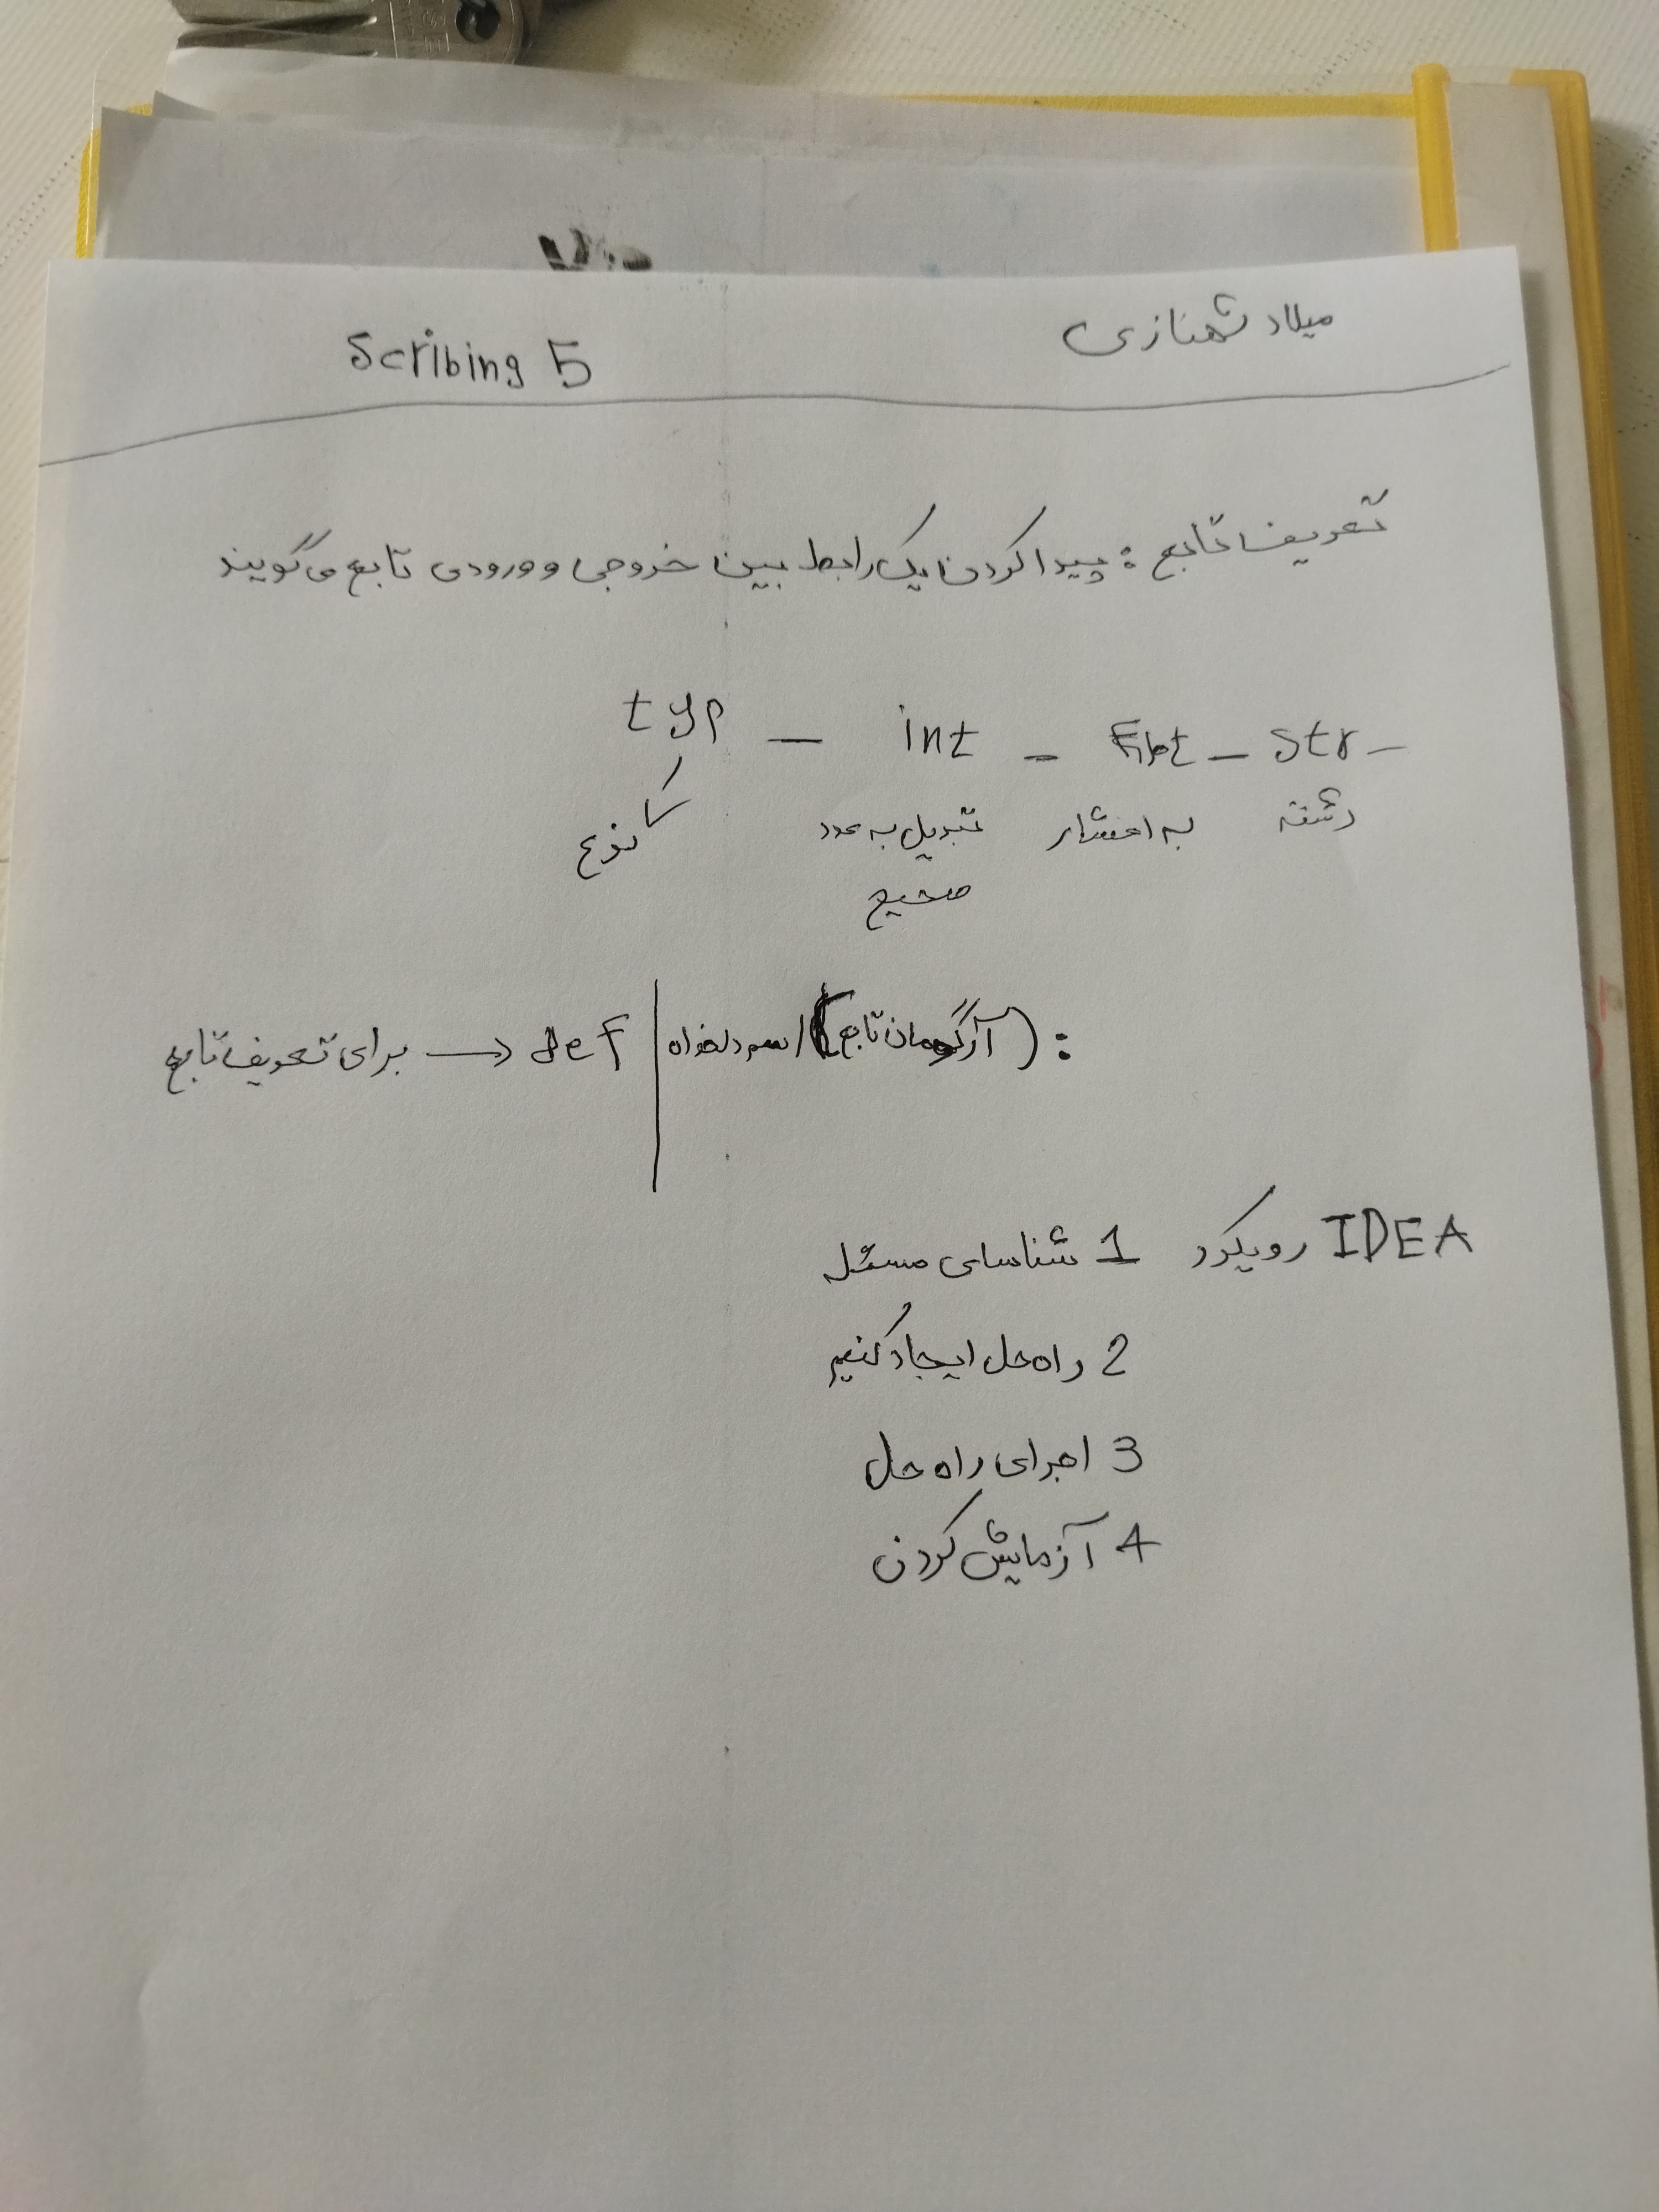 میلاد شهنازی
Scribing 5
تعریف تابع : پیدا کردن یک رابط بین خروجی و ورودی تابع می گویند
typ – int – – str –
نوع تبدیل به عدد به اعشار رشته
صحیح
برای تعریف تابع ← def | اسم دلخواه (آرگومان تابع) :
IDEA رویکرد 1 شناسای مسئله
2 راه حل ایجاد کنیم
3 اجرای راه حل
4 آزمایش کردن